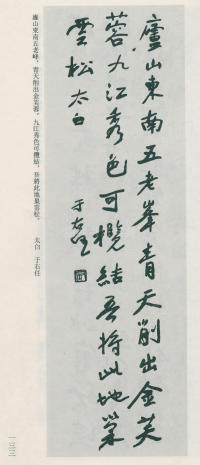 廬山東南五老峯青天削出金芙
蓉九江秀色可攬結吾將此地巢
雲松太白
于右任
廬山東南五老峰，青天削出金芙蓉。九江秀色可攬結，吾將此地巢雲松。 太白 于右任
一三三